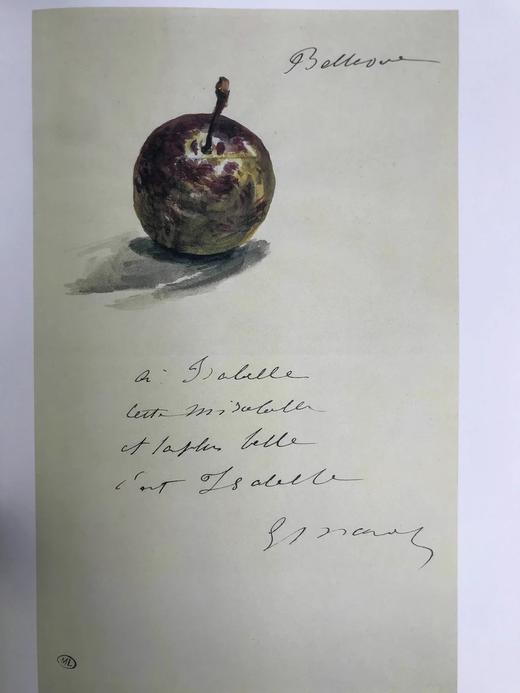 Bellevue
à Isabelle
cette mirabelle
et la plus belle
c'est Isabelle
Ed Manet
ML